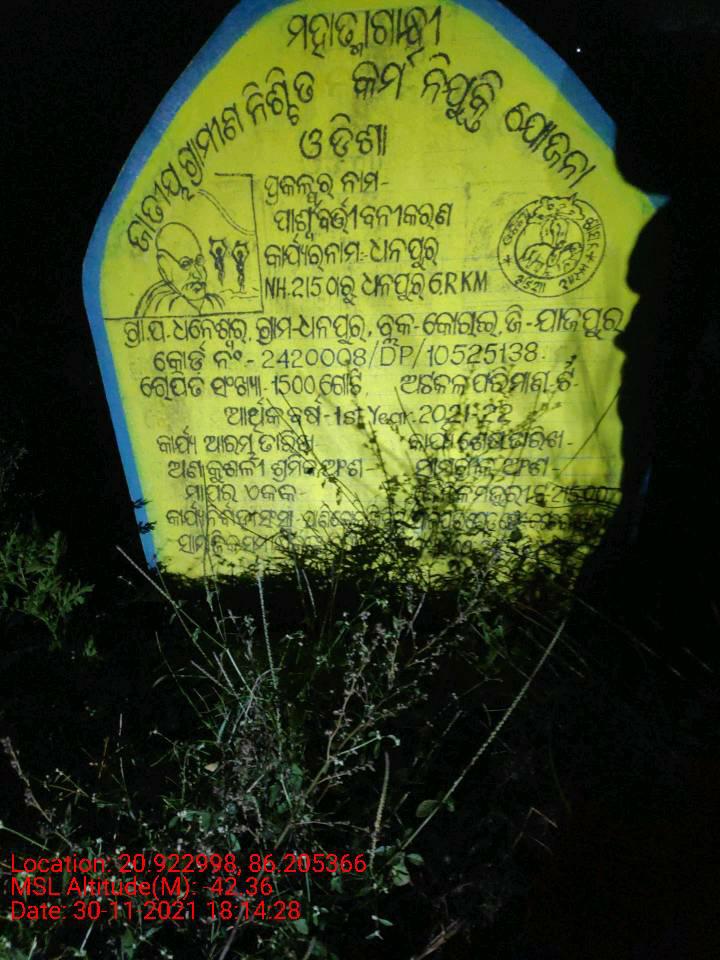 ମହାତ୍ମାଗାନ୍ଧୀ
ଜାତୀୟ ଗ୍ରାମୀଣ ନିଶ୍ଚିତ କର୍ମ ନିଯୁକ୍ତି ଯୋଜନା
ଓଡିଶା
ପ୍ରକଳ୍ପର ନାମ-
ପାର୍ଶ୍ଵବର୍ତ୍ତୀ ବନୀକରଣ
କାର୍ଯ୍ୟର ନାମ:- ଧାନପୁର
NH.215 ଠାରୁ ଧାନପୁର G.R KM
ଗ୍ରା.ପ. ଧନେଶ୍ୱର, ଗ୍ରାମ-ଧାନପୁର, ବ୍ଲକ-କୋରାଇ, ଜି-ଯାଜପୁର
କୋର୍ଡ ନଂ - 2420008/DP/10525138
ରୋପିତ ସଂଖ୍ୟା -1500 ଗୋଟି, ଅଟକଳ ପରିମାଣ ଟ.
ଆର୍ଥିକ ବର୍ଷ -1st Year. 2021-22
କାର୍ଯ୍ୟ ଆରମ୍ଭ ତାରିଖ କାର୍ଯ୍ୟ ଶେଷ ତାରିଖ -
ଅଣକୁଶଳୀ ଶ୍ରମିକ ଅଂଶ - ସାମଗ୍ରୀକ ଅଂଶ -
ମାପର ଏକକ
Location: 20.922998, 86.205366
MSL Altitude(M): -42.36
Date: 30-11-2021 18:14:28